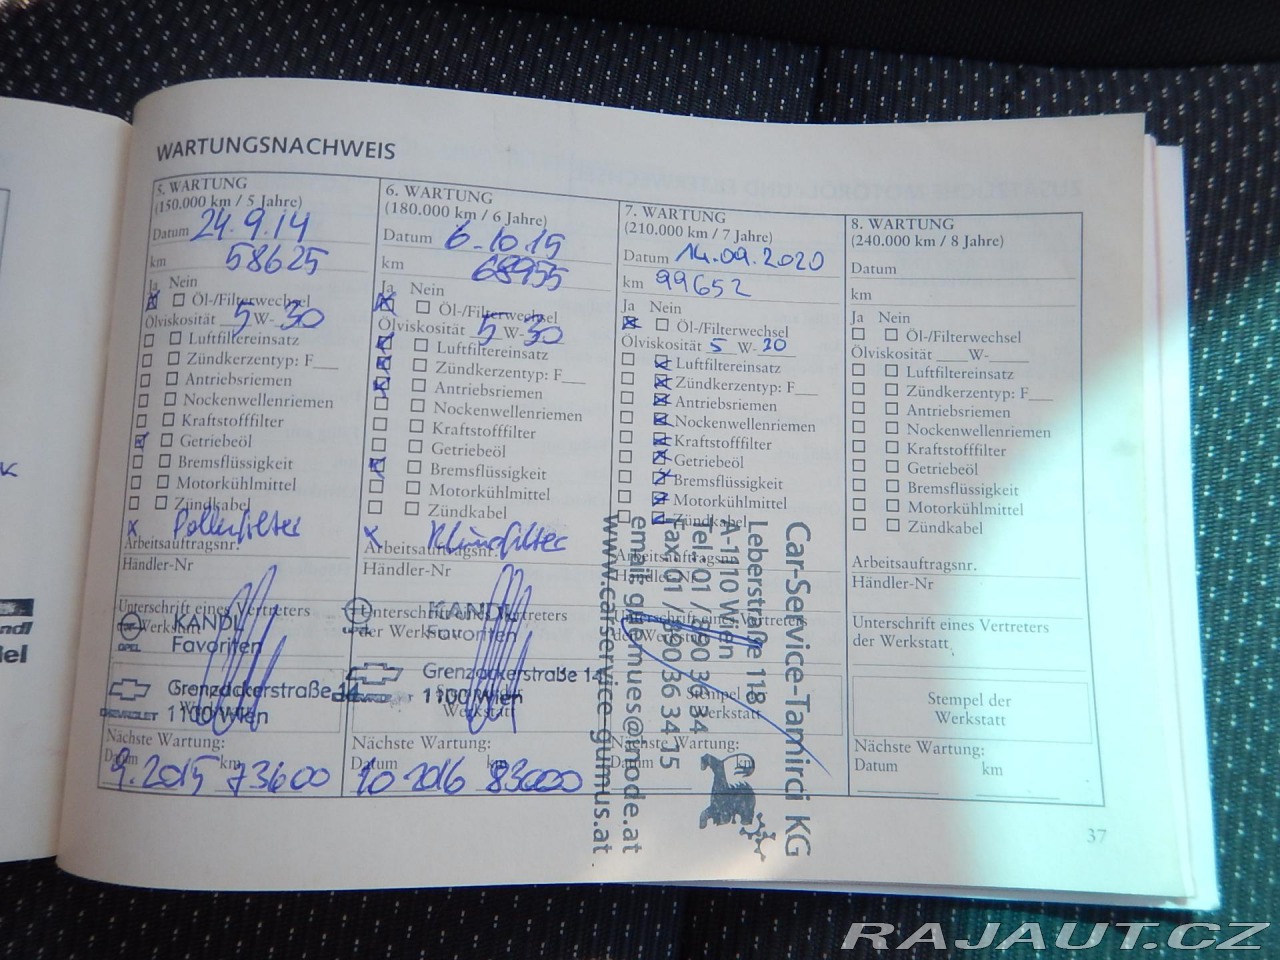 WARTUNGSNACHWEIS
5. WARTUNG
(150.000 km / 5 Jahre)
Datum 24.9.14
km 58625
Ja Nein
Öl-/Filterwechsel
Ölviskosität 5 W-30
Luftfiltereinsatz
Zündkerzentyp: F___
Antriebsriemen
Nockenwellenriemen
Kraftstofffilter
Getriebeöl
Bremsflüssigkeit
Motorkühlmittel
Zündkabel
x Pollenfilter
Arbeitsauftragsnr.
Händler-Nr
Unterschrift eines Vertreters
der Werkstatt
KANDL
Favoriten
OPEL
Grenzackerstraße 14
CHEVROLET 1100 Wien
Nächste Wartung:
Datum km
9.2015 73600
6. WARTUNG
(180.000 km / 6 Jahre)
Datum 6.10.15
km 68955
Ja Nein
Öl-/Filterwechsel
Ölviskosität 5 W-30
Luftfiltereinsatz
Zündkerzentyp: F___
Antriebsriemen
Nockenwellenriemen
Kraftstofffilter
Getriebeöl
Bremsflüssigkeit
Motorkühlmittel
Zündkabel
x Klimafilter
Arbeitsauftragsnr.
Händler-Nr
Unterschrift eines Vertreters
der Werkstatt
KANDL
Favoriten
Grenzackerstraße 14
1100 Wien
Werkstatt
Nächste Wartung:
Datum km
10 2016 83000
7. WARTUNG
(210.000 km / 7 Jahre)
Datum 14.09.2020
km 99652
Ja Nein
Öl-/Filterwechsel
Ölviskosität 5 W-30
Luftfiltereinsatz
Zündkerzentyp: F___
Antriebsriemen
Nockenwellenriemen
Kraftstofffilter
Getriebeöl
Bremsflüssigkeit
Motorkühlmittel
Zündkabel
Arbeitsauftragsnr.
Händler-Nr
Unterschrift eines Vertreters
der Werkstatt
Stempel der
Werkstatt
Nächste Wartung:
Datum km
Car-Service-Tamirci KG
Leberstraße 118
A-1110 Wien
Tel.: 01 / 890 36 34
Fax: 01 / 890 36 34 15
email: guemues@inode.at
www.carservice-gumus.at
8. WARTUNG
(240.000 km / 8 Jahre)
Datum
km
Ja Nein
Öl-/Filterwechsel
Ölviskosität ___W-___
Luftfiltereinsatz
Zündkerzentyp: F___
Antriebsriemen
Nockenwellenriemen
Kraftstofffilter
Getriebeöl
Bremsflüssigkeit
Motorkühlmittel
Zündkabel
Arbeitsauftragsnr.
Händler-Nr
Unterschrift eines Vertreters
der Werkstatt
Stempel der
Werkstatt
Nächste Wartung:
Datum km
37
RAJAUT.CZ